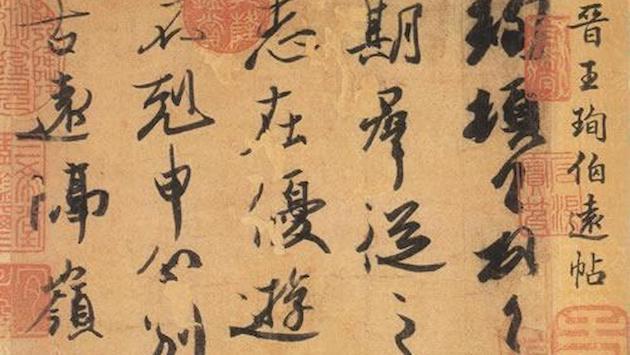 晉王珣伯遠帖
珣頓首頓首
期羣從之
志在優遊
不剋申分別
古遠隔嶺